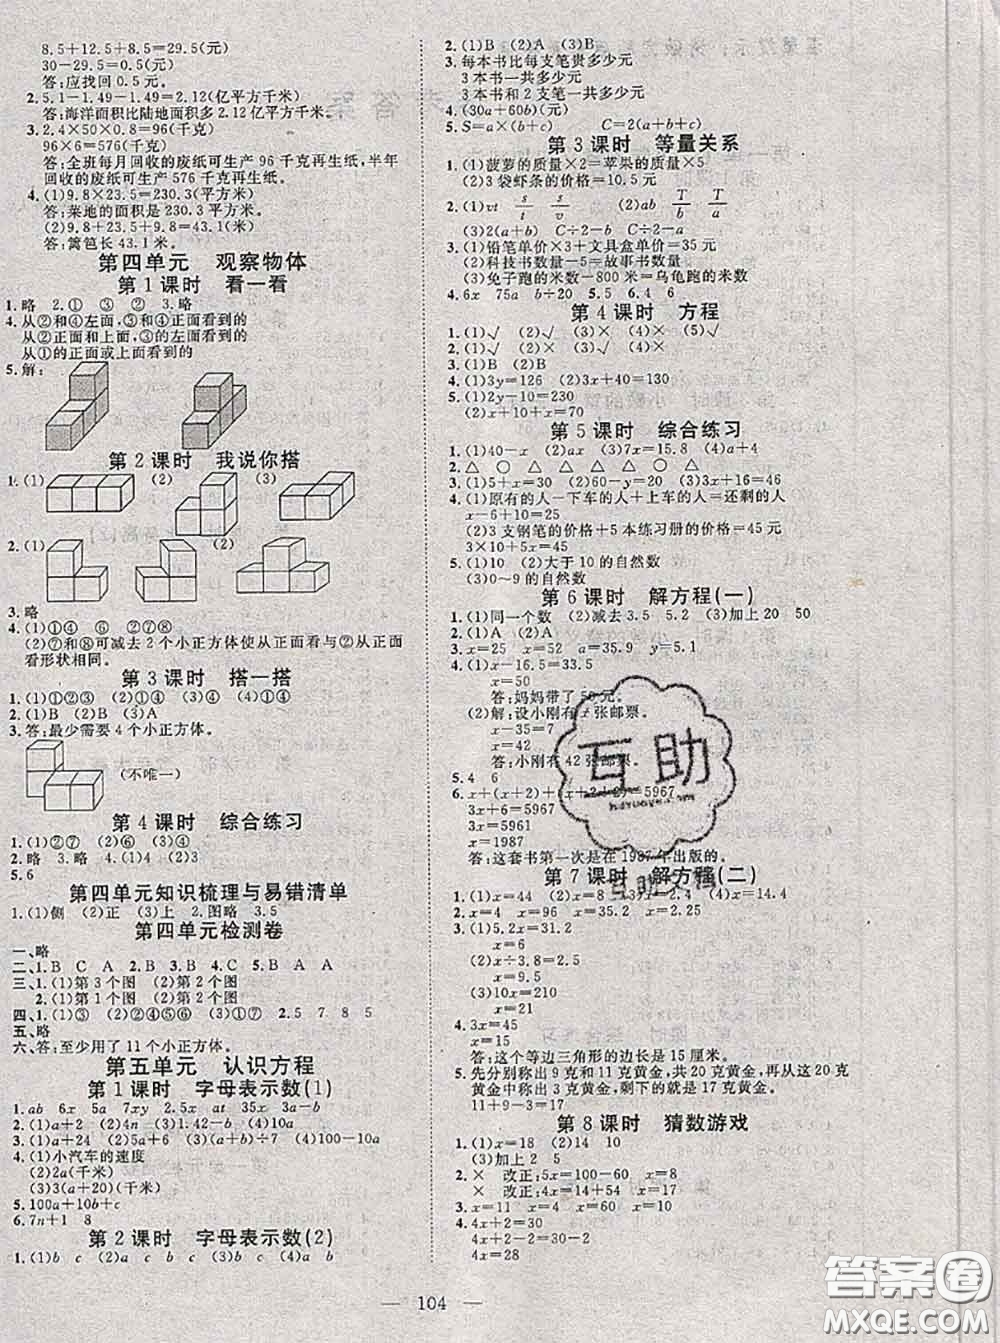 8.5+12.5+8.5=29.5(元)
30-29.5=0.5(元)
答:应找回0.5元。
2.5.1-1.49-1.49=2.12(亿平方千米)
答:海洋面积比陆地面积多2.12亿平方千米。
3.2.4×50×0.8=96(千克)
96×6=576(千克)
答:全班每月回收的废纸可生产96千克再生纸,半年
回收的废纸可生产576千克再生纸。
4.(1)9.8×23.5=230.3(平方米)
答:菜地的面积是230.3平方米。
(2)9.8+23.5+9.8=43.1(米)
答:篱笆长43.1米。
第四单元 观察物体
第1课时 看一看
1.略 2.① ③ ② 3.略
4.从②和④左面,③和④正面看到的
从②正面和上面,④上面看到的
从①的正面或上面看到的
5.解:
第2课时 我说你搭
1.(1) (2) (3)
2.(1) (2)
3.略
4.(1)①④ ⑥ ②⑦⑧
(2)⑦和⑧可减去2个小正方体使从正面看与②从正面
看形状相同。
第3课时 搭一搭
1.(1)①②③ (2)①④ (3)①④ (4)①④
2.(1)B (2)B (3)A
3.答:最少需要4个小正方体。
(不唯一)
第4课时 综合练习
1.(1)①②⑦ (2)⑥ (3)④
2.略 3.略 4.(1)4 (2)3
5.6
第四单元知识梳理与易错清单
1.(1)侧 (2)正 (3)上 2.图略 3.5
第四单元检测卷
一、略
二、1.B C A 2.B 3.B 4.C 5.B A A
三、1.(1)第3个图 (2)第2个图
2.(1)第1个图 (2)第2个图
四、1.(1)③ (2)②④⑤⑥ (3)①⑦ 2.5 7 8 5
五、略
六、答:至少用了11个小正方体。
第五单元 认识方程
第1课时 字母表示数(1)
1.ab 6x 5a 7xy 2.5x at 35x 9a
2.(1)a+2 (2)4m (3)1.42-b (4)a-b
3.(1)24+a (2)9b (3)(a+b)÷7 (4)100-10a
4.(1)小汽车的速度
(2)2a(千米)
(3)3(a+20)(千米)
5.100a+10b+c
6.7n+1 8
第2课时 字母表示数(2)
1.(1)b c (2)a c b c (3)b c (4)a b
2.(1)B (2)A (3)B
3.每本书比每支笔贵多少元
3本书一共多少元
3本书和2支笔一共多少元
4.(30a+60b)(米)
5.S=a×(b+c) C=2(a+b+c)
第3课时 等量关系
1.(1)菠萝的质量×2=苹果的质量×5
(2)3袋虾条的价格=10.5元
2.(1)vt s/t s/v (2)ab T/b T/a
(3)2(a+b) C÷2-b C÷2-a
3.(1)铅笔单价×3+文具盒单价=30.8元
(2)科技书数量-5=故事书数量
(3)兔子跑的米数-800米=乌龟爬的米数
4.6x 75a b÷20 5.5 6.4 6
第4课时 方程
1.(1)√ (2)× (3)× (4)× (5)√
2.(1)√ (2)√ (3)√ (4)×
3.(1)B (2)B
4.(1)3y=126 (2)3x+40=130
5.(1)2y-10=230
(2)x+10+x=70
第5课时 综合练习
1.(1)40-x (2)5ax (3)7.6x (4)a+4
2.△ ○ △ ○ △ ○
3.(1)5+x=30 (2)3x=60 (3)4x=160
4.(1)原有的人-下车的人+上车的人=还剩的人
x-6=25
(2)3支钢笔的价格+5本练习册的价格=45元
3×10+5x=45
5.(1)8 (2)大于10的自然数
(3)0~9的自然数
第6课时 解方程(一)
1.(1)同一个数 (2)减去3.5 5.2 (3)加上20 50
2.(1)A (2)A
3.x=25 x=52 a=35.9 x=5.1
4.(1)x-16.5=33.5
x=50
答:妈妈带了50元。
(2)解:设小刚有x张邮票。
x-35=7
x=42
答:小刚有42张邮票。
5.4 6
6.x+(x+2)+(x+2+2)=5967
3x+6=5967
3x=5961
x=1987
答:这套书第一次是在1987年出版的。
第7课时 解方程(二)
1.(1)x=44 (2)x=8 (3)x=24 (4)x=14.4
2.x=4 x=96 x=6.8 x=6
3.(1)5.2x=31.2
x=6
(2)x÷3.8=2.5
x=9.5
(3)10x=210
x=21
4.3x=45
x=15
答:这个等边三角形的边长是15厘米。
5.先分别称出9克和11克黄金,共20克黄金,再从这20克
黄金中称出3克黄金,剩下的就是17克黄金。
11+9-3=17
第8课时 猜数游戏
1.(1)x=18 (2)14 10
(3)加上2 5
2.× 改正:5x=100-60 x=8
× 改正:4x=14+54 x=17
3.x=11 x=4 x=2 x=7
4.4x+2=30
4x=28
互助
互助文档
104
答案圈
MXQE.COM